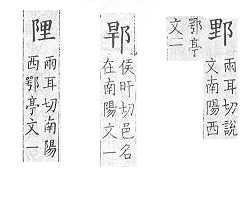 𨛋
兩耳切說
文南陽西
鄂亭
文一
侯旰切邑名
在南陽文一
兩耳切南陽
西鄂亭文一